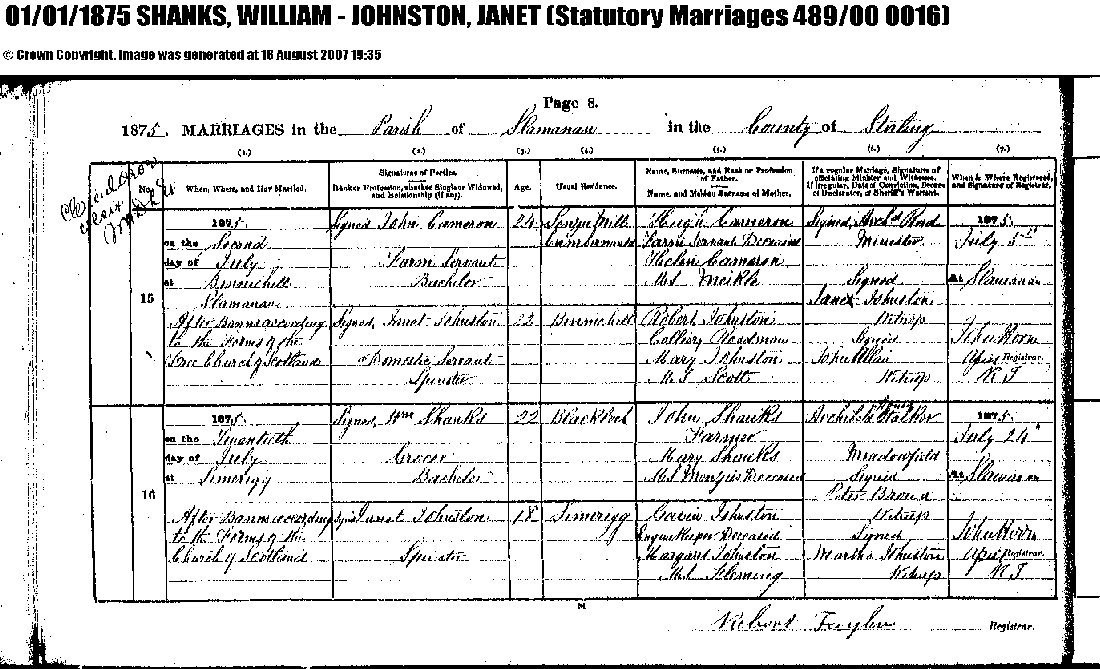 01/01/1875 SHANKS, WILLIAM - JOHNSTON, JANET (Statutory Marriages 489/00 0016)
© Crown Copyright. Image was generated at 16 August 2007 19:35
Page 8.
1875. MARRIAGES in the Parish of Slamanan in the County of Stirling
(1.) (2.) (3.) (4.) (5.) (6.) (7.)
No.
When, Where, and How Married.
Signatures of Parties.
Rank or Profession, whether Single or Widowed, and Relationship (if any).
Age.
Usual Residence.
Name, Surname, and Rank or Profession of Father.
Name, and Maiden Surname of Mother.
If a regular Marriage, Signatures of officiating Minister and Witnesses.
If irregular, Date of Conviction, Decree of Declarator, or Sheriff's Warrant.
When & Where Registered, and Signature of Registrar.
15
1875.
on the Second
day of July
at Binniehill
Slamanan
After Banns according
to the Forms of the
Free Church of Scotland
Signed John Cameron
Farm Servant
Bachelor
24
Signed Janet Johnston
Domestic Servant
Spinster
22
Binniehill
Hugh Cameron
Farm Servant Deceased
Helen Cameron
M.S. Meikle
Robert Johnston
Colliery Roadman
Mary Johnston
M.S. Scott
Signed, Archd
Minister
Signed
Janet Johnston
Witness
Signed
Witness
1875.
July 5th
at Slamanan
Registrar.
16
1875.
on the Twentieth
day of July
at Limerigg
After Banns according
to the Forms of the
Church of Scotland
Signed, Wm Shanks
Grocer
Bachelor
22
Signed Janet Johnston
Spinster
18
Limerigg
John Shanks
Farmer
Mary Shanks
M.S. Menzies Deceased
Gavin Johnston
Engine Keeper Deceased
Margaret Johnston
M.S. Fleming
Walker
Meadowfield
Signed
Peter Brown
Witness
Signed
Martha Johnston
Witness
1875.
July 24th
at Slamanan
Registrar.
Registrar.